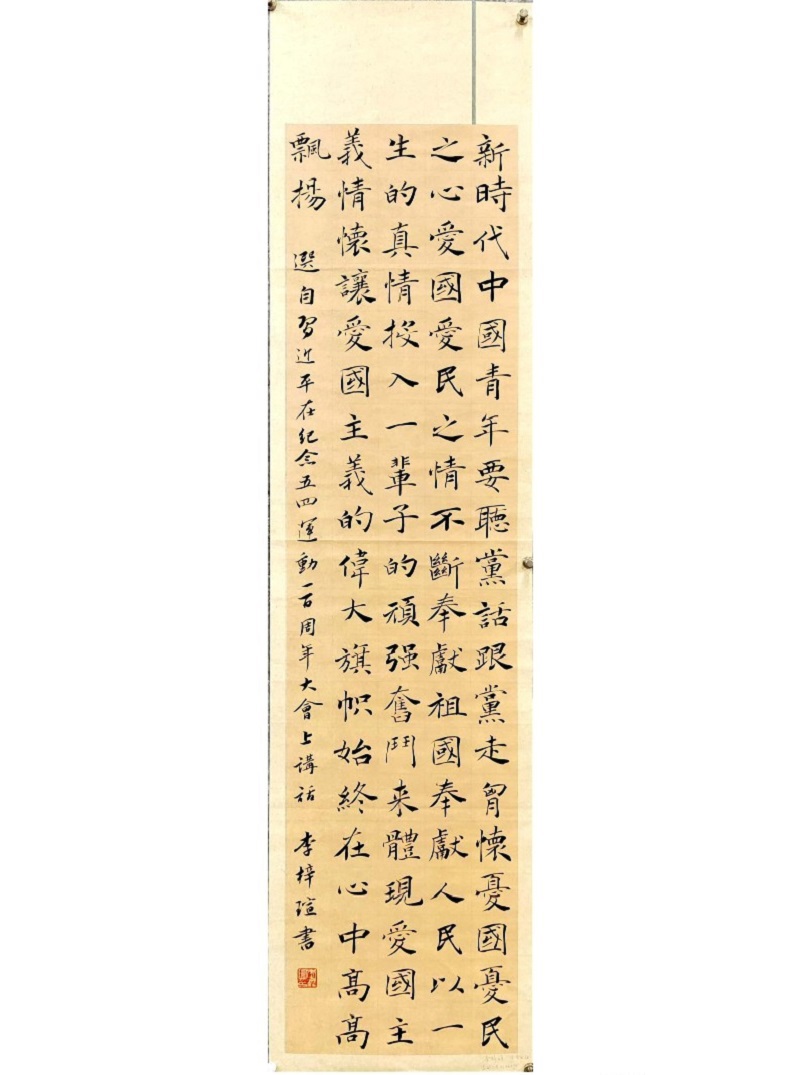 新時代中國青年要聽黨話跟黨走胷懷憂國憂民
之心愛國愛民之情不斷奉獻祖國奉獻人民以一
生的真情投入一輩子的頑强奮鬥来體現愛國主
義情懷讓愛國主義的偉大旗帜始終在心中髙髙
飄揚
選自習近平在纪念五四運動一百周年大會上講話 李梓瑄書